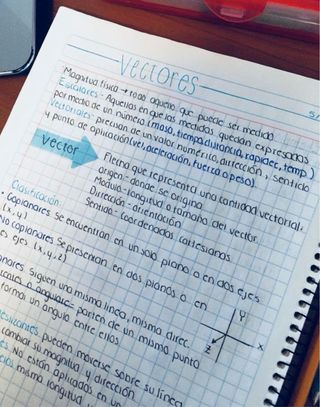 Vectores
Magnitud física → todo aquello que puede ser medido
Escalares - Aquellas en que las medidas quedan expresadas
por medio de un número (masa, tiempo, distancia, rapidez, temp)
Vectoriales - precisan de un valor numérico, dirección, sentido
y punto de aplicación (vel, aceleración, fuerza o peso).
Vector
Flecha que representa una cantidad vectorial.
origen - donde se origina
Módulo - longitud o tamaño del vector
Dirección - orientación
Sentido - coordenadas cartesianas
Clasificación:
• Coplanares se encuentran en un solo plano o en dos ejes
(x, y)
No coplanares se presentan en dos planos o en
es ejes (x, y, z)
siguen una misma línea, misma direc.
o angulares parten de un mismo punto
forman un ángulo entre ellos
pueden moverse sobre su línea
cambiar su magnitud y dirección
No están aplicados en un
misma longitud
Y
X
Z